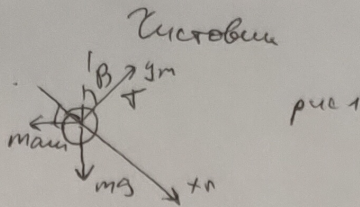 Чистовик
β
ym
T
рис 1
mg
xn